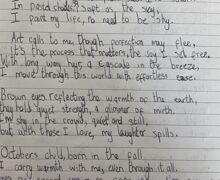 In pastel shades, soft as the sea,
I paint my life, no need to be shy.
Art calls to me, though perfection may flee,
It's the process that matters, the soul I set free.
With long wavy hair, a cascade in the breeze,
I move through this world with effortless ease.
Brown eyes reflecting the warmth of the earth,
They hold quiet strength, a dancer in mirth.
I'm shy in the crowd, quiet and still,
but with those I love, my laughter spills.
October's child, born in the fall
I carry warmth with me, even through it all.